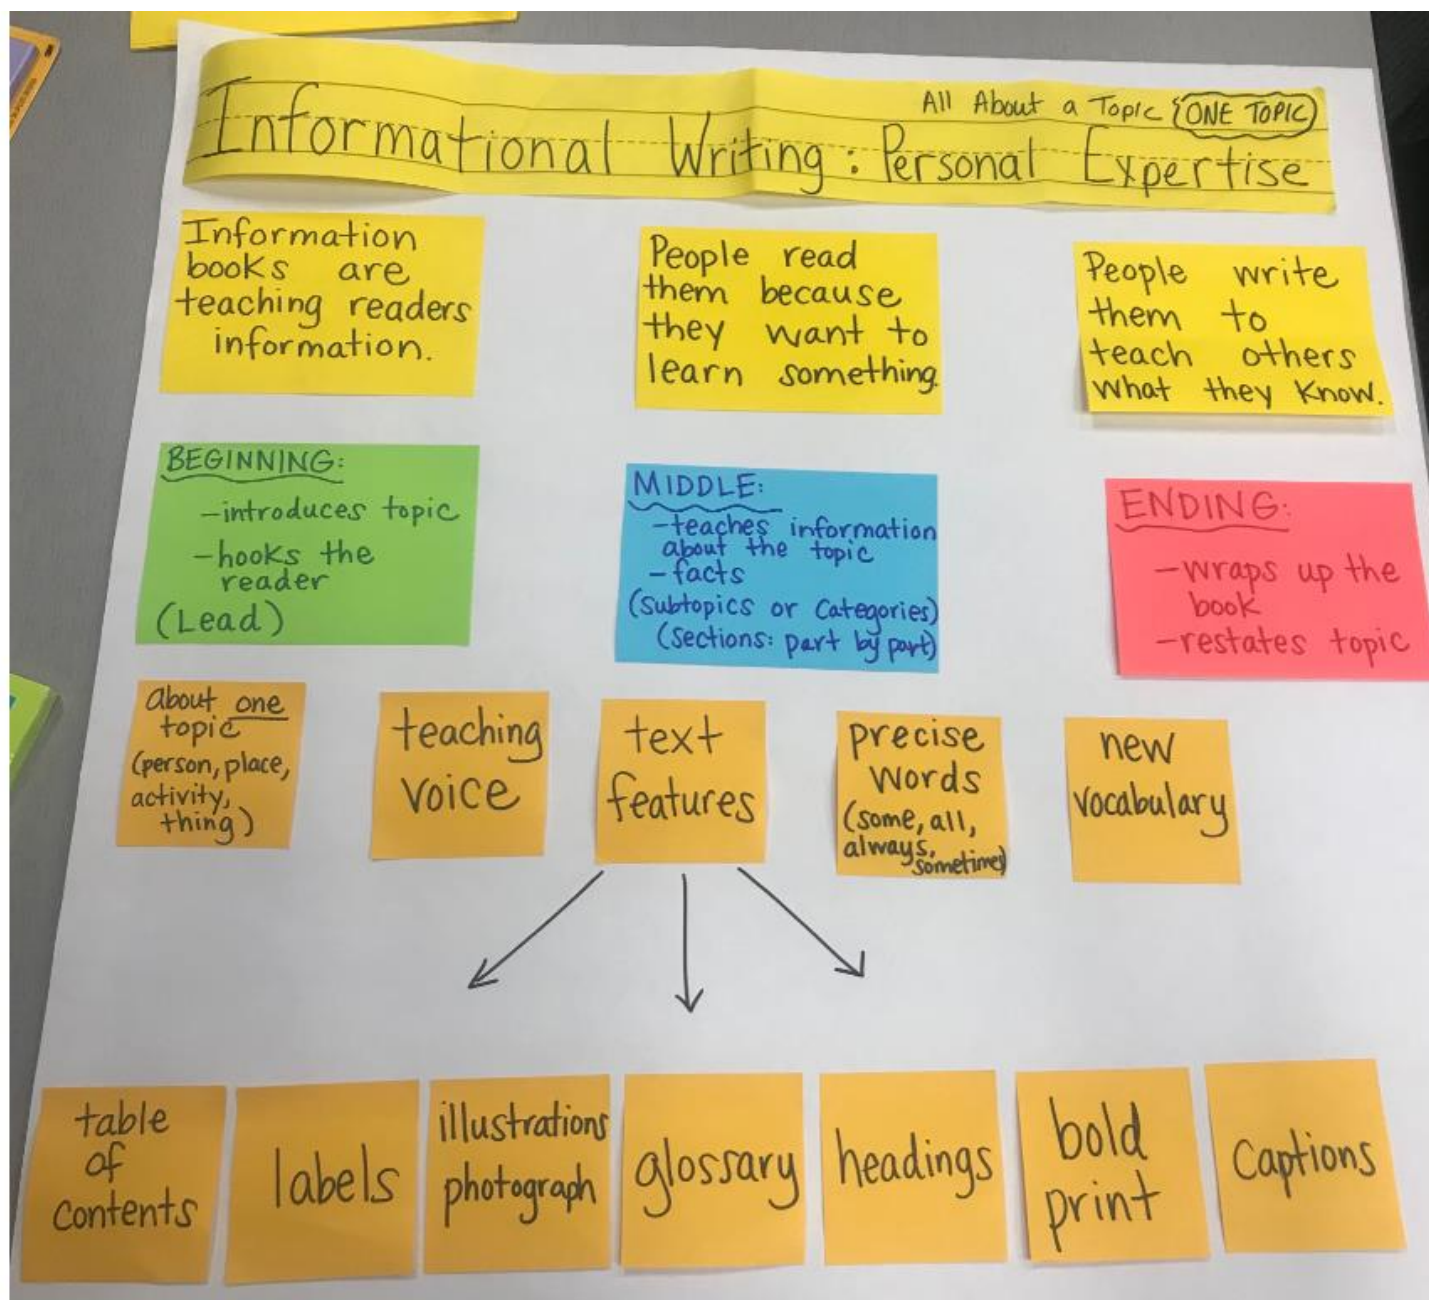 All About a Topic (ONE TOPIC)
Informational Writing: Personal Expertise
Information
books are
teaching readers
information.
People read
them because
they want to
learn something.
People write
them to
teach others
what they know.
BEGINNING:
-introduces topic
-hooks the
reader
(Lead)
MIDDLE:
-teaches information
about the topic
-facts
(subtopics or categories)
(sections: part by part)
ENDING:
-wraps up the
book
-restates topic
About one
topic
(person, place,
activity,
thing)
teaching
voice
text
features
precise
words
(some, all,
always,
sometimes)
new
vocabulary
table
of
contents
labels
illustrations
photograph
glossary
headings
bold
print
captions